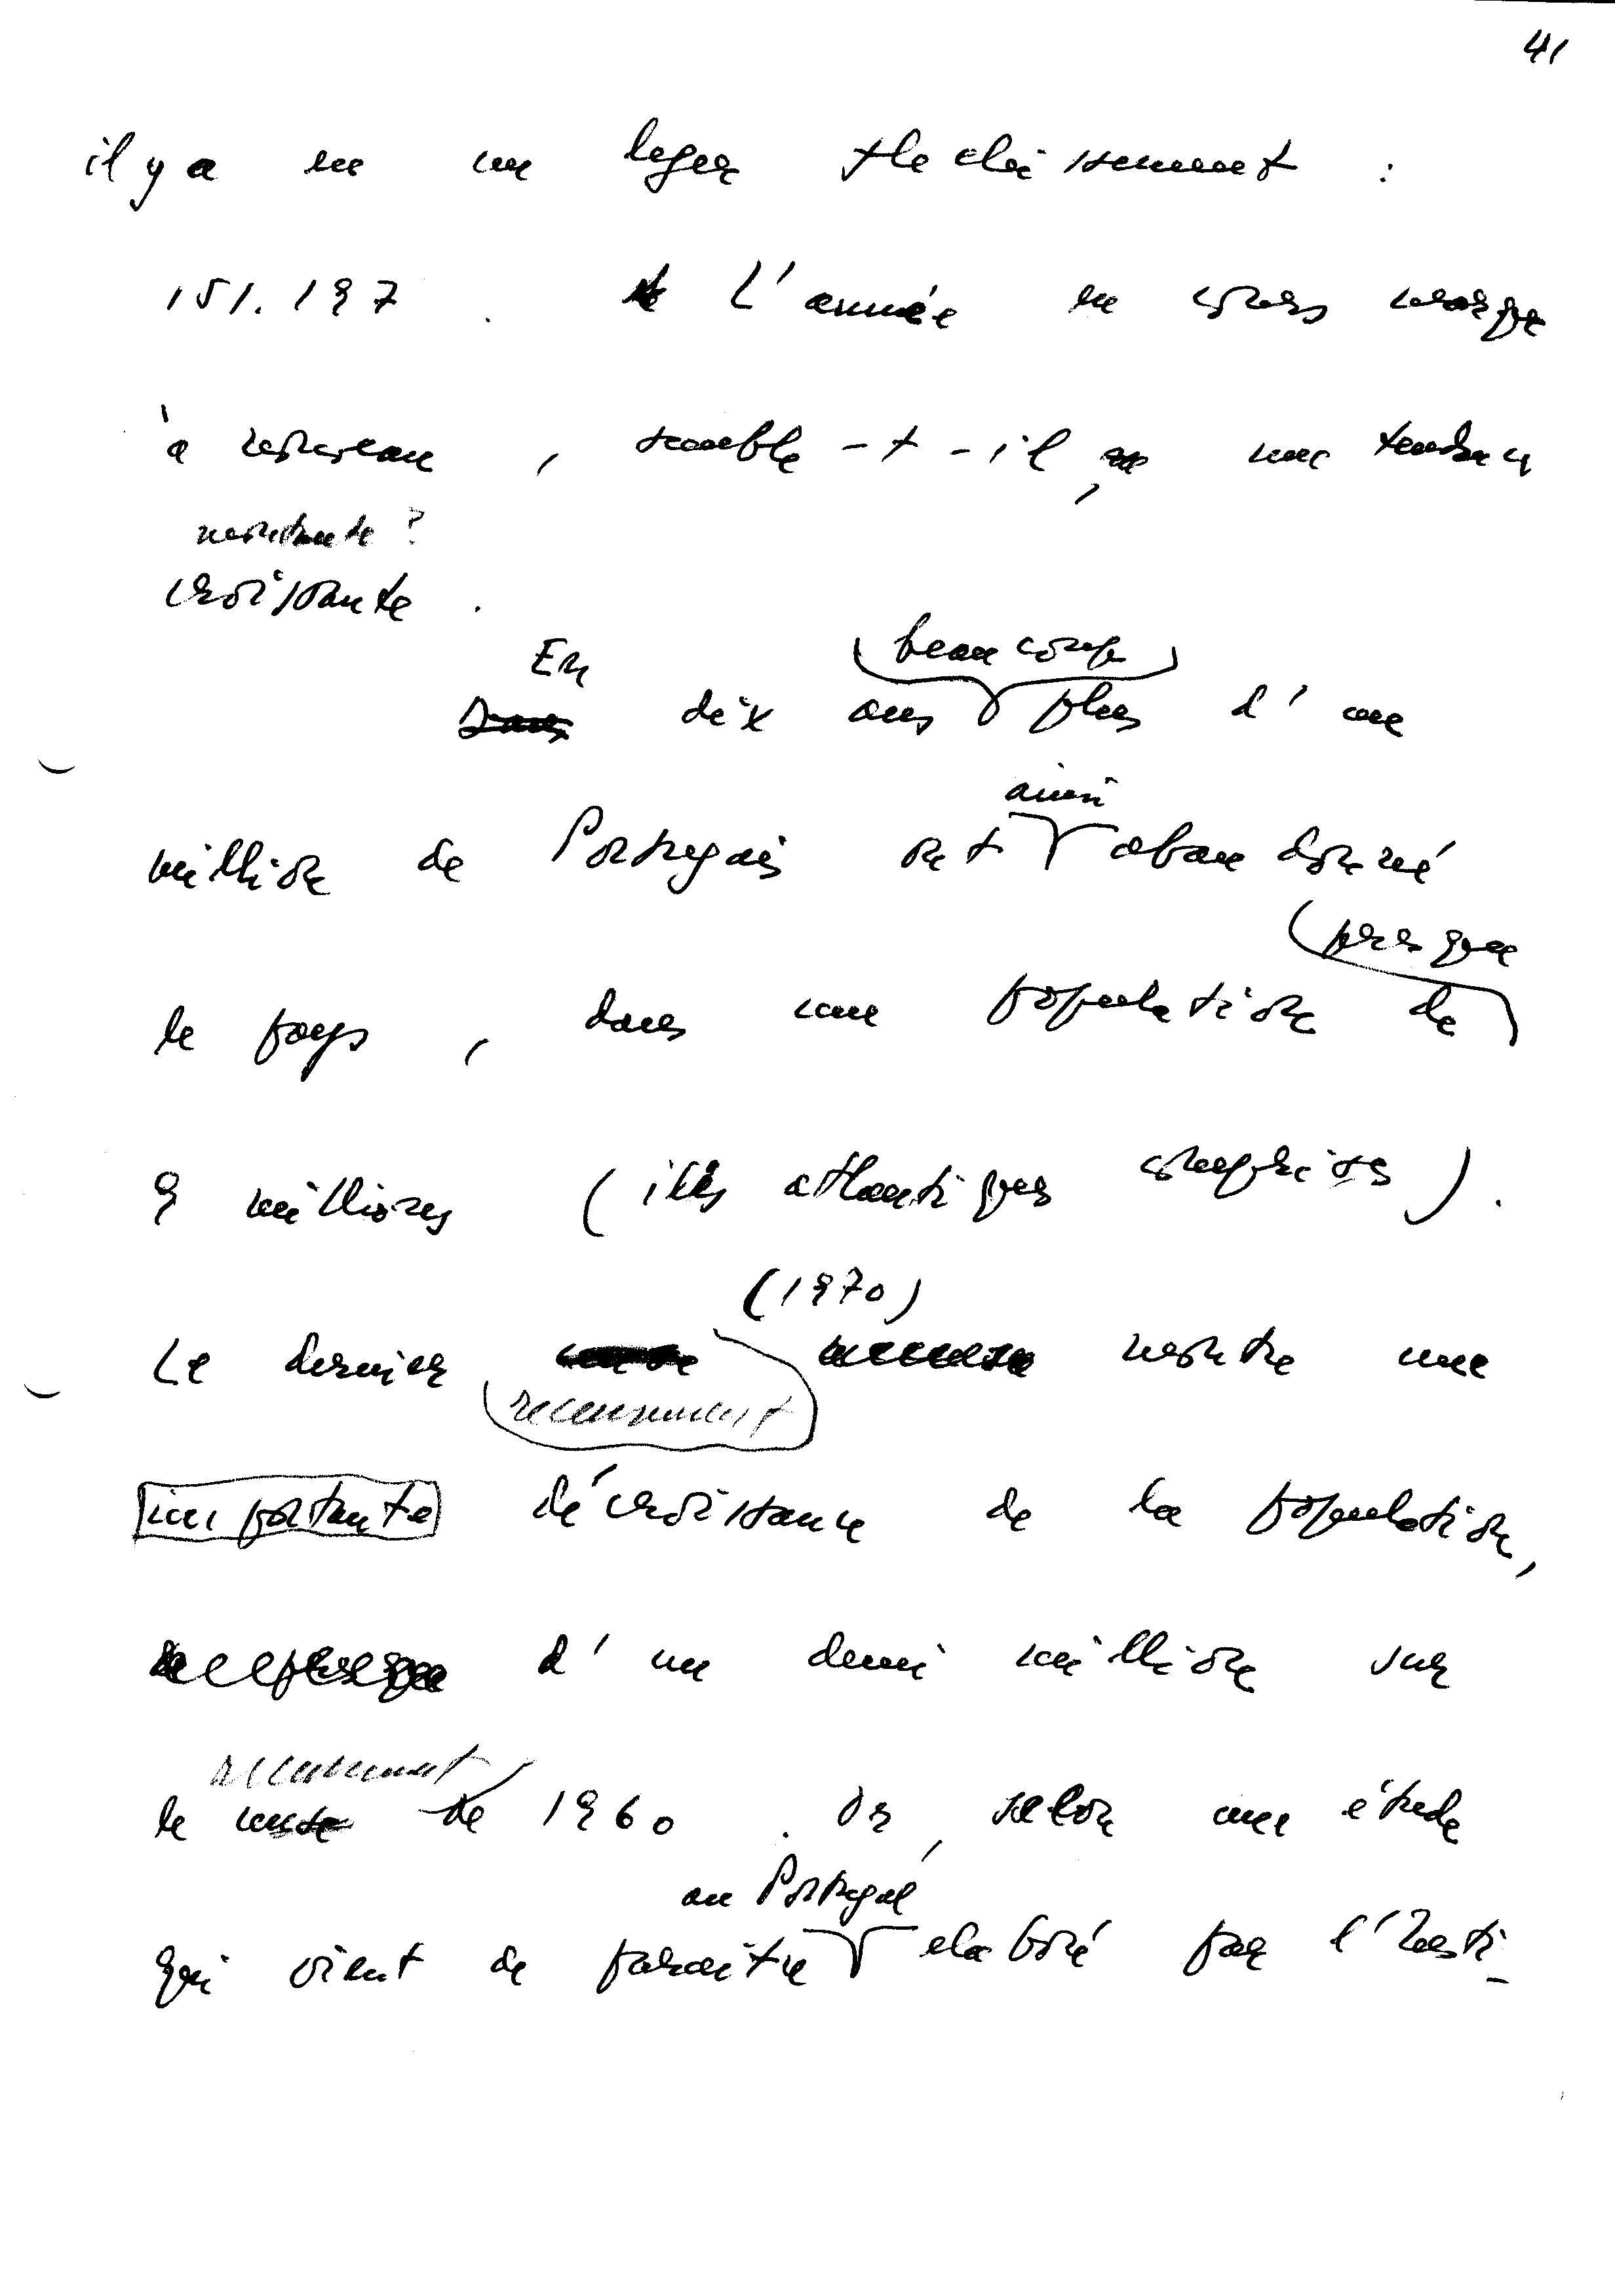 41
il y a eu un leger flechissement :
151.197 . L'année en cours marque
à nouveau , semble-t-il , une tendance
montante ?
croissante .
En beaucoup
Dans dix ans plus d'un
ainsi
million de Portugais ont abandonné
presque
le pays , dans une population de
9 millions (iles atlantiques comprises) .
(1970)
Le dernier montre une
recensement
importante décroissance de la population,
d'un demi million sur
recensement
le cense de 1960 . Or, selon une étude
au Portugal
qui vient de paraitre elaboré par l'Insti-